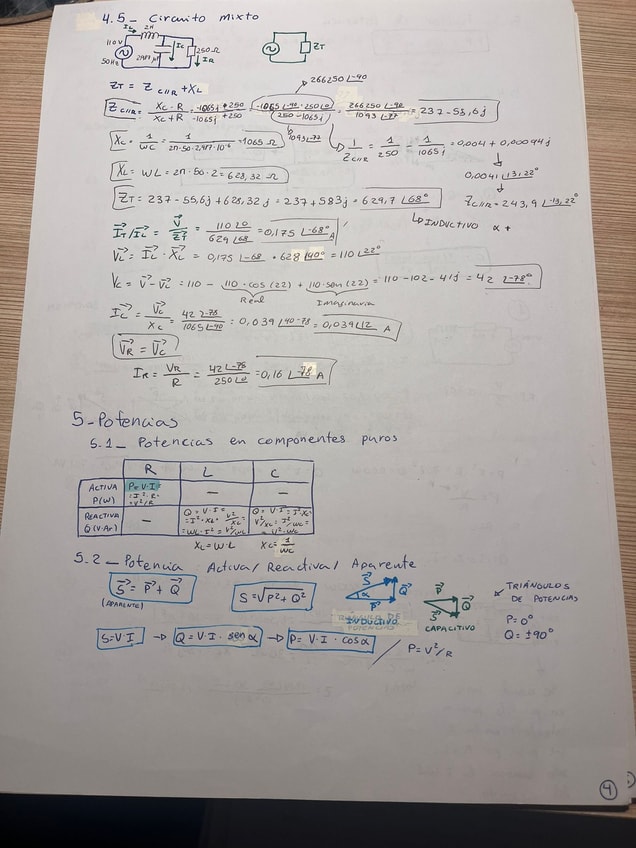 4.5- Circuito mixto
IL 2H
110V
50Hz
IC
250Ω
IR
ZT
266250 ∟-90
ZT = Z C//R + XL
Z C//R = XC·R / XC+R = -1065j·250 / -1065j+250 = -1065∟-90·250∟0 / (250-1065j) = 266250∟-90 / 1093∟-77 = 237-53,6j
1093∟-77
XC = 1/WC = 1/2π·50·2,987·10⁻⁶ = 1065 Ω
1/ZC//R = 1/250 - 1/1065j = 0,004 + 0,00094j
XL = WL = 2π·50·2 = 628,32 Ω
0,0041∟13,22°
ZT = 237-55,6j + 628,32j = 237+583j = 629,7∟68°
ZC//R = 243,9∟-13,22°
INDUCTIVO α +
IT/IL = V/ZT = 110∟0 / 629∟68 = 0,175∟-68° A
VL = IL · XL = 0,175∟-68 · 628∟90° = 110∟22°
VC = V-VL = 110 - 110·cos(22) + 110·sen(22) = 110-102-41j = 42∟-78°
Real Imaginaria
IC = VC/XC = 42∟-78 / 1065∟-90 = 0,039∟90-78 = 0,039∟12 A
VR = VC
IR = VR/R = 42∟-78 / 250∟0 = 0,16∟-78 A
5-Potencias
5.1_ Potencias en componentes puros
R L C
ACTIVA P(W) P=V·I= =I²·R= =V²/R — —
REACTIVA Q(V·Ar) — Q=V·I= =I²·XL= V²/XL =WL·I²=V²/WL Q=V·I=I²XC= V²/XC=I²/WC= =V²·WC
XL=W·L XC=1/WC
5.2_ Potencia Activa/Reactiva/Aparente
S = P + Q
(APARENTE)
S=√P²+Q²
S Q α P
INDUCTIVO
P Q S
CAPACITIVO
TRIÁNGULOS
DE POTENCIAS
P=0°
Q=±90°
S=V·I → Q=V·I·senα → P=V·I·cosα / P=V²/R
4